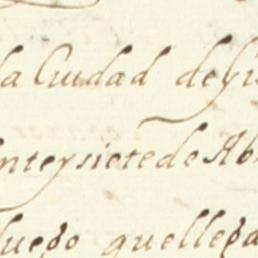 la Ciudad de
inteysiete de Ab
luego quellega